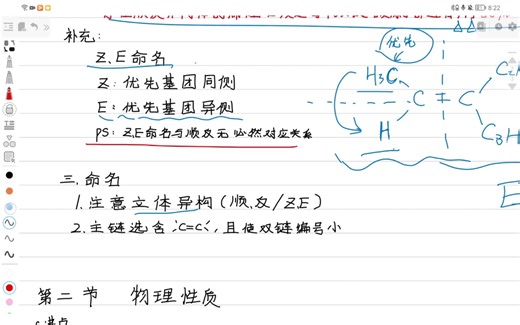 8:22
补充:
Z、E命名
Z: 优先基团同侧
E: 优先基团异侧
PS: Z.E命名与顺反无必然对应关系
优先
H₃C
C
C
H
E
三. 命名
1.注意立体异构(顺、反/ZE)
2.主链选含"C=C", 且使双键编号小
第二节 物理性质